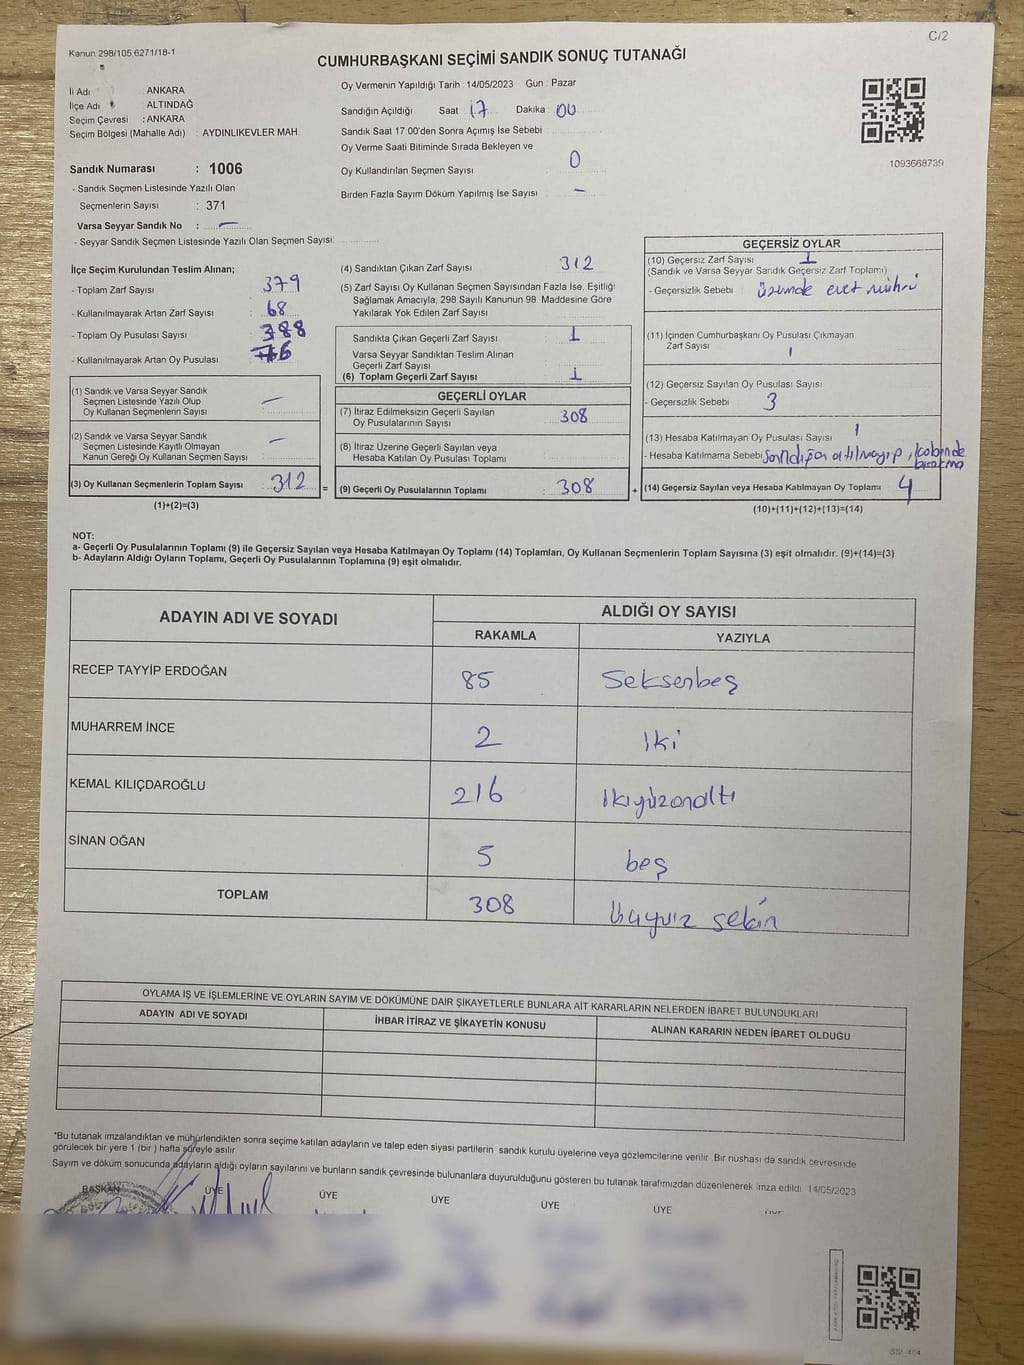 C/2
Kanun 298/105,6271/18-1
CUMHURBAŞKANI SEÇİMİ SANDIK SONUÇ TUTANAĞI
İl Adı : ANKARA
İlçe Adı : ALTINDAĞ
Seçim Çevresi : ANKARA
Seçim Bölgesi (Mahalle Adı) : AYDINLIKEVLER MAH.
Oy Vermenin Yapıldığı Tarih : 14/05/2023 Gün : Pazar
Sandığın Açıldığı Saat : 17 Dakika : 00
Sandık Saat 17:00'den Sonra Açımış İse Sebebi
Oy Verme Saati Bitiminde Sırada Bekleyen ve
Oy Kullandırılan Seçmen Sayısı : 0
Birden Fazla Sayım Döküm Yapılmış İse Sayısı : -
1093668739
Sandık Numarası : 1006
- Sandık Seçmen Listesinde Yazılı Olan
Seçmenlerin Sayısı : 371
Varsa Seyyar Sandık No : -
- Seyyar Sandık Seçmen Listesinde Yazılı Olan Seçmen Sayısı:
İlçe Seçim Kurulundan Teslim Alınan;
- Toplam Zarf Sayısı : 379
- Kullanılmayarak Artan Zarf Sayısı : 68
- Toplam Oy Pusulası Sayısı : 388
- Kullanılmayarak Artan Oy Pusulası
(1) Sandık ve Varsa Seyyar Sandık
Seçmen Listesinde Yazılı Olup
Oy Kullanan Seçmenlerin Sayısı : -
(2) Sandık ve Varsa Seyyar Sandık
Seçmen Listesinde Kayıtlı Olmayan
Kanun Gereği Oy Kullanan Seçmen Sayısı : -
(3) Oy Kullanan Seçmenlerin Toplam Sayısı : 312 =
(1)+(2)=(3)
(4) Sandıktan Çıkan Zarf Sayısı : 312
(5) Zarf Sayısı Oy Kullanan Seçmen Sayısından Fazla İse, Eşitliği
Sağlamak Amacıyla, 298 Sayılı Kanunun 98. Maddesine Göre
Yakılarak Yok Edilen Zarf Sayısı :
Sandıkta Çıkan Geçerli Zarf Sayısı : 1
Varsa Seyyar Sandıktan Teslim Alınan
Geçerli Zarf Sayısı :
(6) Toplam Geçerli Zarf Sayısı : 1
GEÇERLİ OYLAR
(7) İtiraz Edilmeksizin Geçerli Sayılan
Oy Pusulalarının Sayısı : 308
(8) İtiraz Üzerine Geçerli Sayılan veya
Hesaba Katılan Oy Pusulası Toplamı :
(9) Geçerli Oy Pusulalarının Toplamı : 308 +
GEÇERSİZ OYLAR
(10) Geçersiz Zarf Sayısı : 1
(Sandık ve Varsa Seyyar Sandık Geçersiz Zarf Toplamı)
- Geçersizlik Sebebi : üzerinde evet mührü
(11) İçinden Cumhurbaşkanı Oy Pusulası Çıkmayan
Zarf Sayısı : 1
(12) Geçersiz Sayılan Oy Pusulası Sayısı :
- Geçersizlik Sebebi : 3
(13) Hesaba Katılmayan Oy Pusulası Sayısı : 1
- Hesaba Katılmama Sebebi: Sandığa atılmayıp, kabinde
bırakma
(14) Geçersiz Sayılan veya Hesaba Katılmayan Oy Toplamı : 4
(10)+(11)+(12)+(13)=(14)
NOT:
a- Geçerli Oy Pusulalarının Toplamı (9) ile Geçersiz Sayılan veya Hesaba Katılmayan Oy Toplamı (14) Toplamları, Oy Kullanan Seçmenlerin Toplam Sayısına (3) eşit olmalıdır. (9)+(14)=(3)
b- Adayların Aldığı Oyların Toplamı, Geçerli Oy Pusulalarının Toplamına (9) eşit olmalıdır.
ADAYIN ADI VE SOYADI ALDIĞI OY SAYISI
RAKAMLA YAZIYLA
RECEP TAYYİP ERDOĞAN 85 Seksenbeş
MUHARREM İNCE 2 İki
KEMAL KILIÇDAROĞLU 216 İkiyüzonaltı
SİNAN OĞAN 5 beş
TOPLAM 308
OYLAMA İŞ VE İŞLEMLERİNE VE OYLARIN SAYIM VE DÖKÜMÜNE DAİR ŞİKAYETLERLE BUNLARA AİT KARARLARIN NELERDEN İBARET BULUNDUKLARI
ADAYIN ADI VE SOYADI İHBAR İTİRAZ VE ŞİKAYETİN KONUSU ALINAN KARARIN NEDEN İBARET OLDUĞU
*Bu tutanak imzalandıktan ve mühürlendikten sonra seçime katılan adayların ve talep eden siyasi partilerin sandık kurulu üyelerine veya gözlemcilerine verilir. Bir nüshası da sandık çevresinde
görülecek bir yere 1 (bir) hafta süreyle asılır.
Sayım ve döküm sonucunda adayların aldığı oyların sayılarını ve bunların sandık çevresinde bulunanlara duyurulduğunu gösteren bu tutanak tarafımızdan düzenlenerek imza edildi. 14/05/2023
BAŞKAN ÜYE ÜYE ÜYE ÜYE ÜYE ÜYE